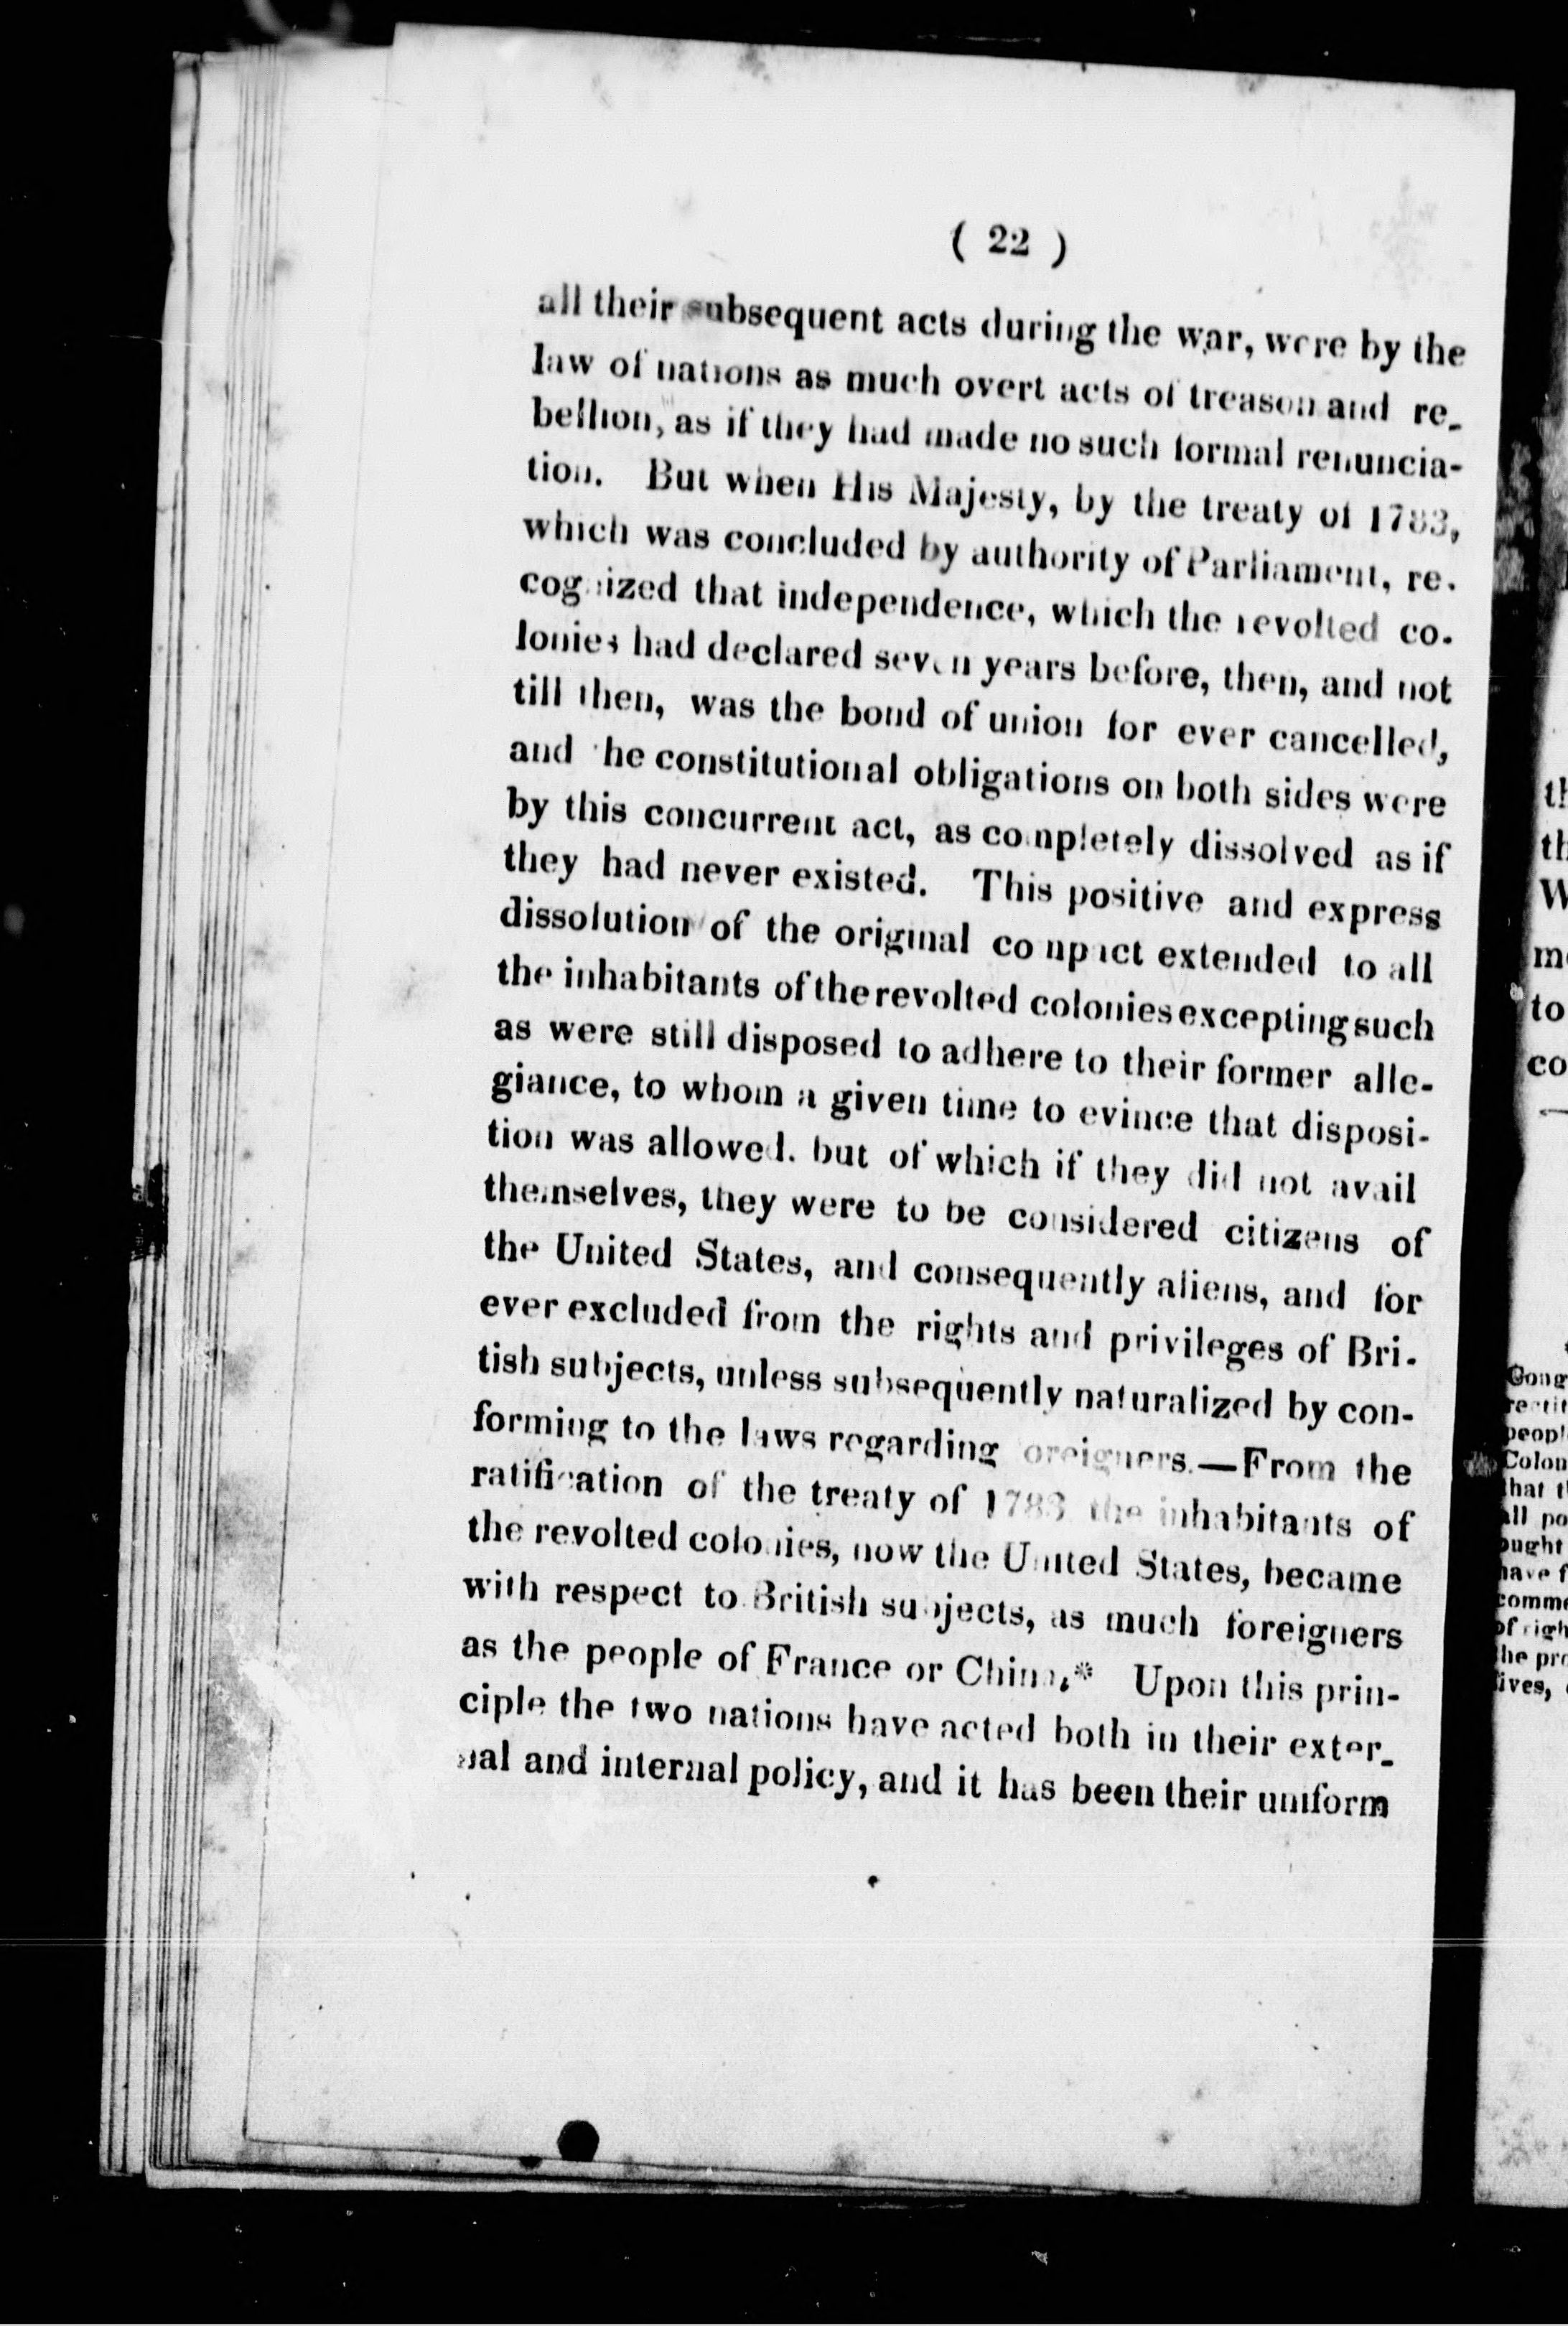 ( 22 )
all their subsequent acts during the war, were by the
law of nations as much overt acts of treason and re-
bellion, as if they had made no such formal renuncia-
tion. But when His Majesty, by the treaty of 1783,
which was concluded by authority of Parliament, re-
cognized that independence, which the revolted co-
lonies had declared seven years before, then, and not
till then, was the bond of union for ever cancelled,
and the constitutional obligations on both sides were
by this concurrent act, as completely dissolved as if
they had never existed. This positive and express
dissolution of the original compact extended to all
the inhabitants of the revolted colonies excepting such
as were still disposed to adhere to their former alle-
giance, to whom a given time to evince that disposi-
tion was allowed. but of which if they did not avail
themselves, they were to be considered citizens of
the United States, and consequently aliens, and for
ever excluded from the rights and privileges of Bri-
tish subjects, unless subsequently naturalized by con-
forming to the laws regarding foreigners.—From the
ratification of the treaty of 1783 the inhabitants of
the revolted colonies, now the United States, became
with respect to British subjects, as much foreigners
as the people of France or China.* Upon this prin-
ciple the two nations have acted both in their exter-
nal and internal policy, and it has been their uniform
to
co